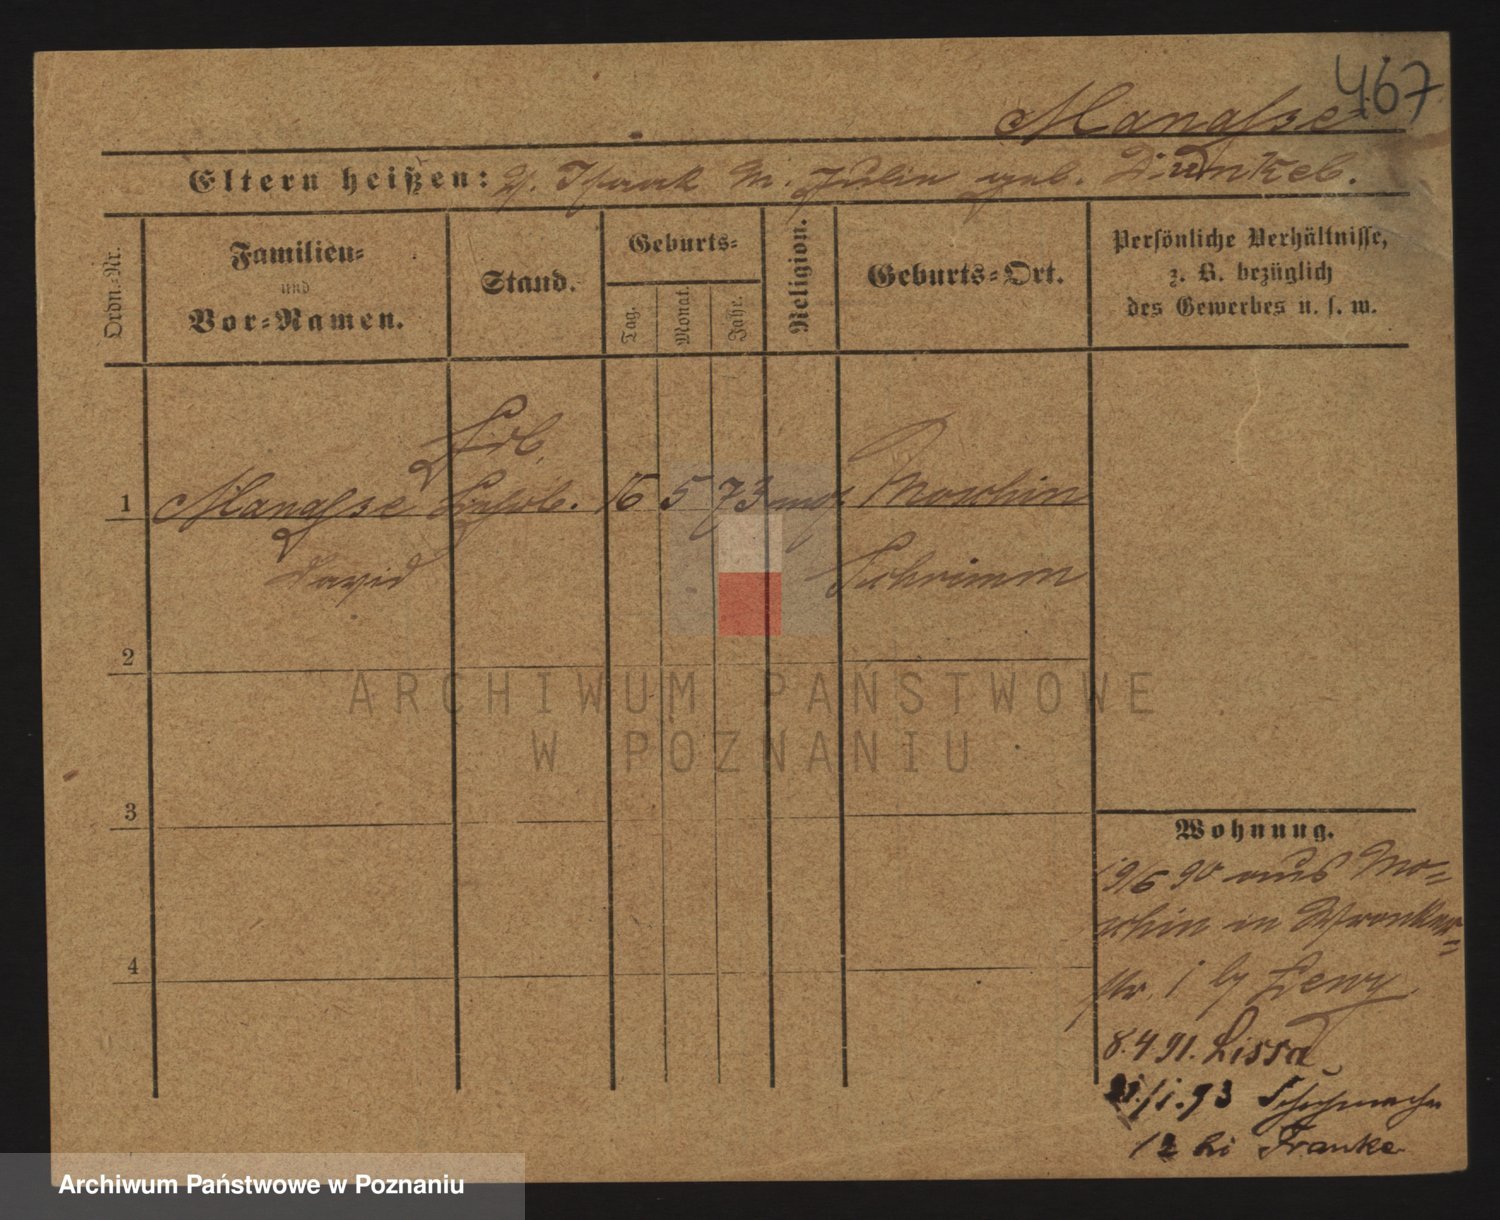 467
Manasse
Eltern heißen: V. Isaak M. Julie geb. Dunkel.
Ordn.-Nr.
Familien-
und
Vor-Namen.
Stand.
Geburts-
Tag.
Monat.
Jahr.
Religion.
Geburts-Ort.
Persönliche Verhältnisse,
z. B. bezüglich
des Gewerbes u. s. w.
1
Manasse
David
16 5 73 mos. Moschin
Schrimm
2
3
4
ARCHIWUM PAŃSTWOWE
W POZNANIU
Wohnung.
19/6 90 aus Mo-
schin in Wronker-
str. 1 b/ Lewy
8.4 91. Lissa
/1.93 Schuhmacher
12 bei Franke
Archiwum Państwowe w Poznaniu